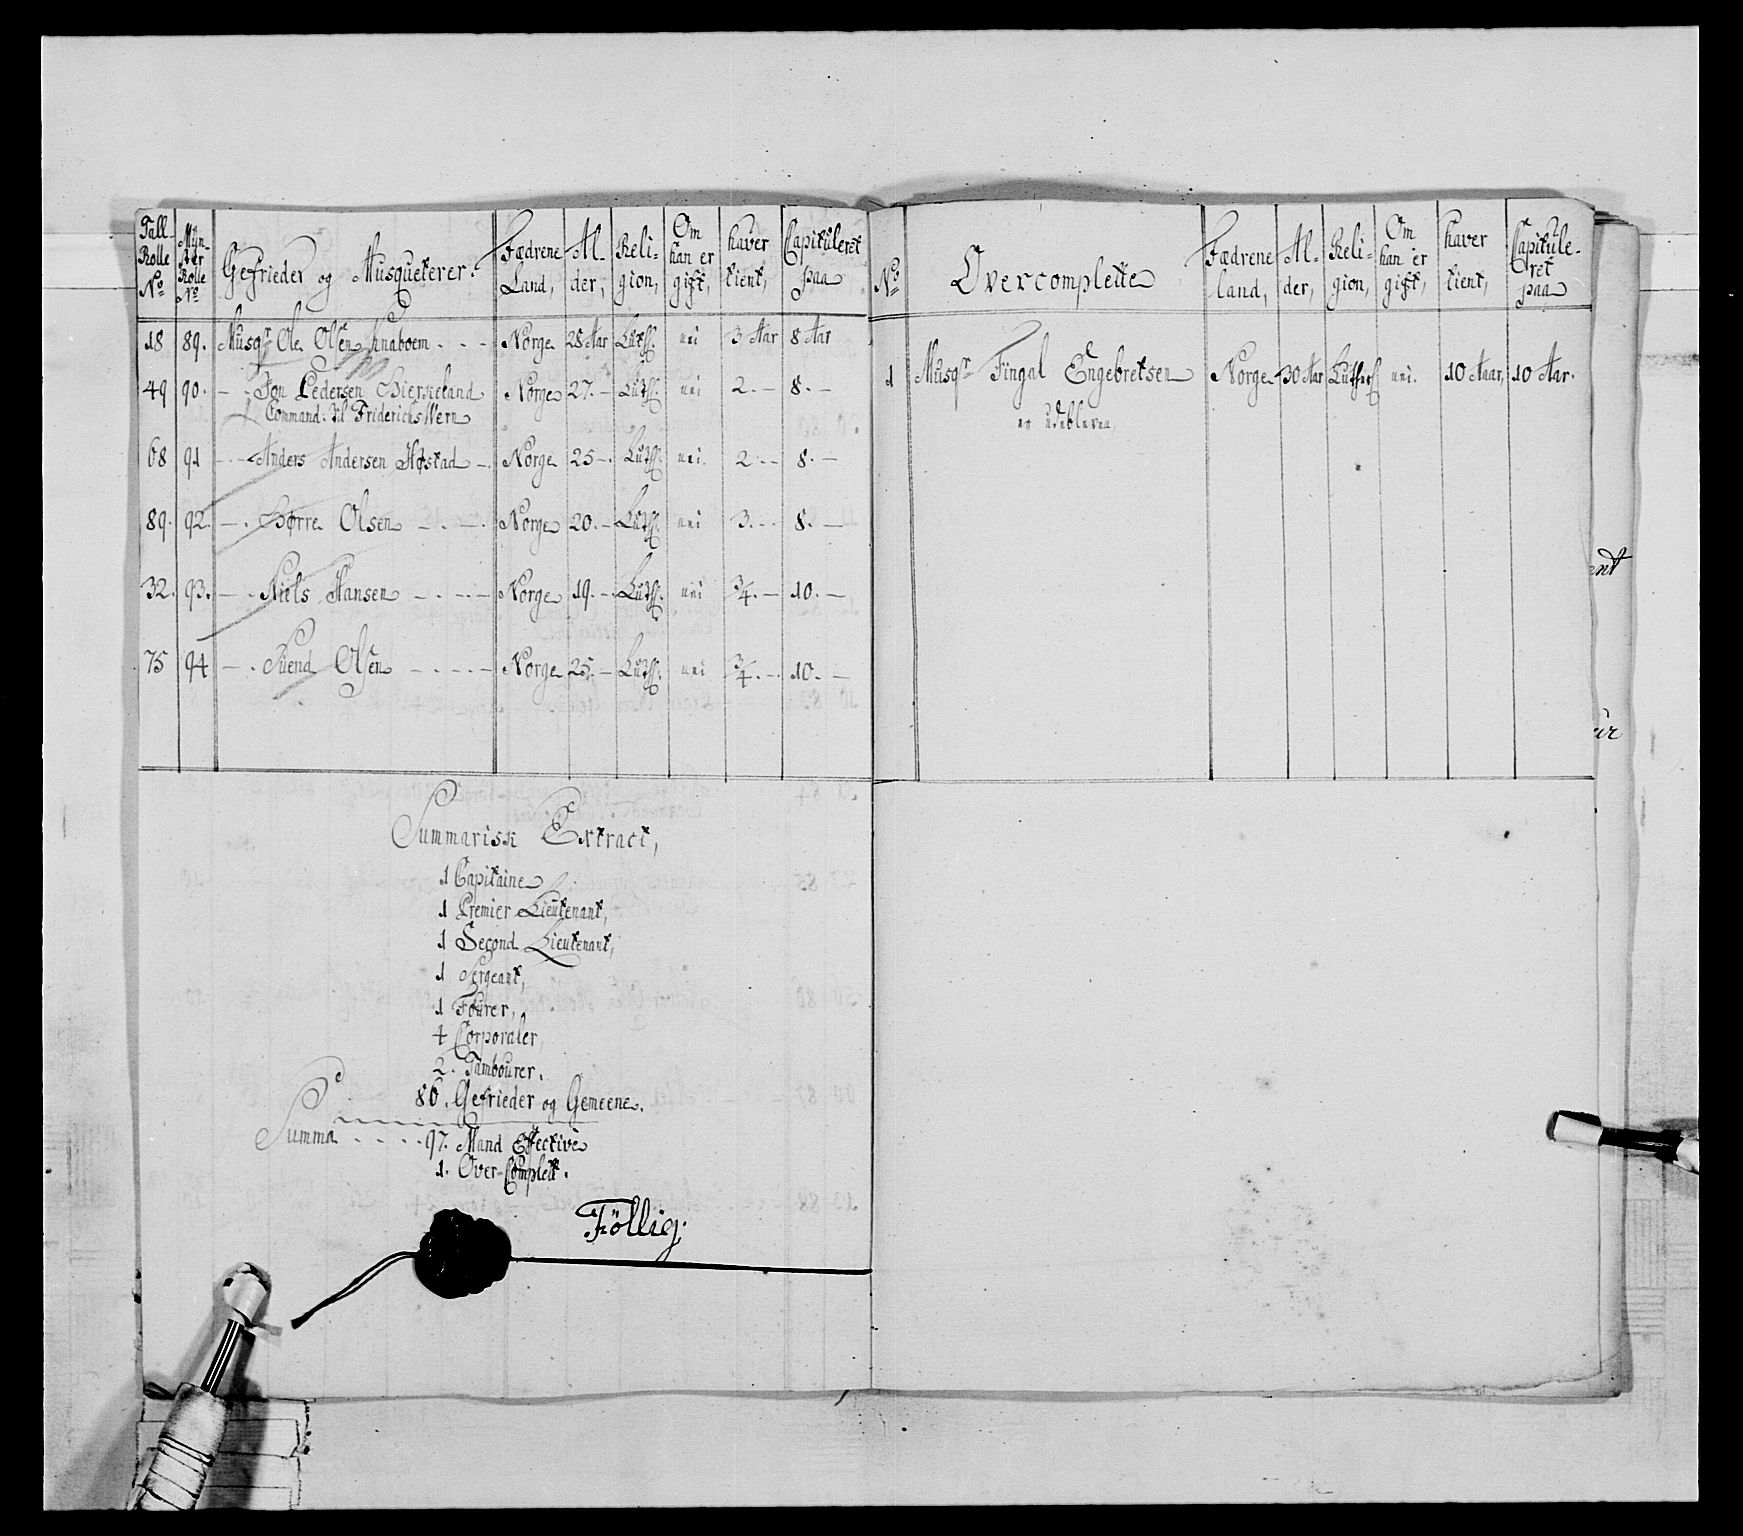 Tall Rolle No. Mynster Rolle No. Gefrieder og Musqueterer. Fædrene Land, Alder, Religion, Om han er gift, haver tient, Capituleret paa
18 89. Musqr. Ole Olsen Knaboem - - - Norge 28 Aar Luth: nei 3 Aar 8 Aar
49 90. - . Jon Pedersen Bierkeland Norge 27. - Luth: nei 2. - 8. -
Command: til Friderichs Wern
68 91 - . - Anders Andersen Høstad - . Norge 25 - . Luth: nei. 2 - - 8. -
89. 92. - . Børre Olsen - . - . Norge 20. - Luth: nei 3. - . 8. -
32. 93. - . Niels Hansen - . - . - Norge 19. - . Luth: nei 3/4. - 10. -
75 94 - . Suend Olsen - . - . - Norge 25. - Luth: nei 3/4. - . 10. -
Summarisk Extract,
1 Capitaine
1 Premier Lieutenant,
1 Second Lieutenant,
1 Sergeant,
1 Fourer,
4 Corporaler
2. Tambourer.
86. Gefrieder og Gemeene.
Summa . . . . 97. Mand Effective
1. Over-Complett.
Föllig;
No. Overcomplette Fædrene land, Alder, Religion, Om han er gift, haver tient, Capituleret paa
1 Musqr. Fingal Engebretsen Norge 30 Aar Luther: nei. 10 Aar, 10 Aar.
er udebleven,
ent
ur